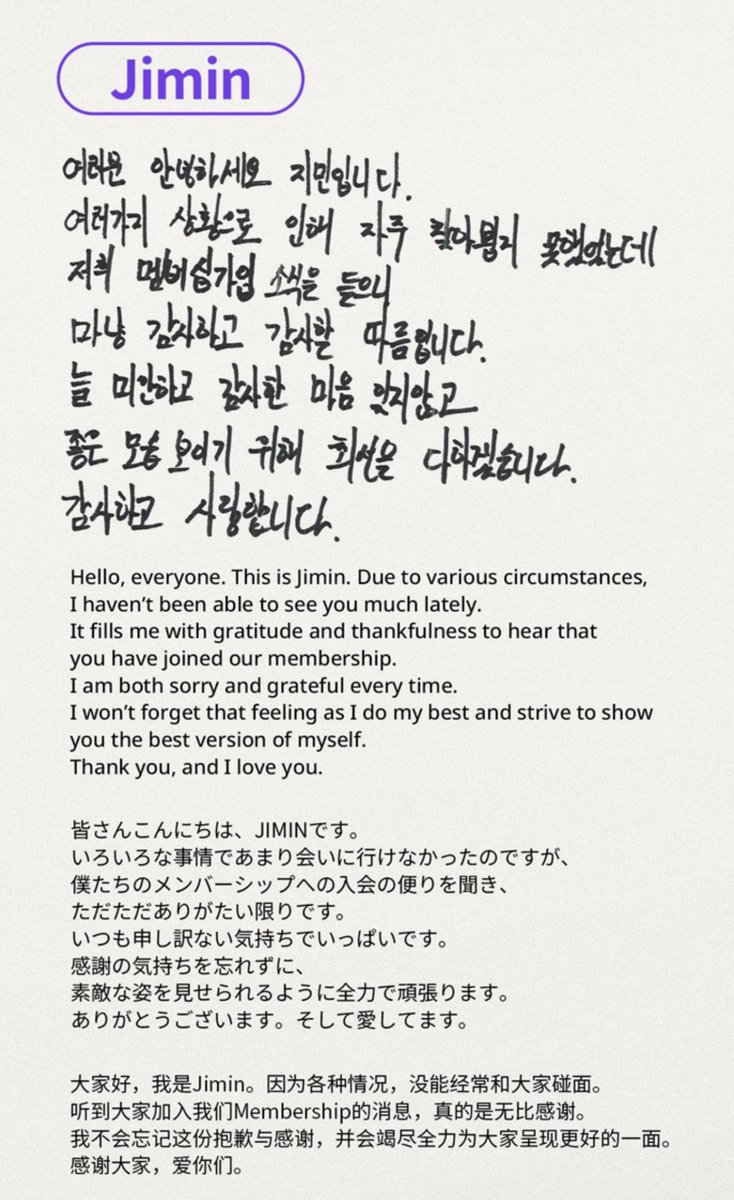 Jimin
여러분 안녕하세요 지민입니다.
여러가지 상황으로 인해 자주 찾아뵙지 못했었는데
저희 멤버쉽가입 소식을 들으니
마냥 감사하고 감사할 따름입니다.
늘 미안하고 감사한 마음 잊지않고
좋은 모습 보이기 위해 최선을 다하겠습니다.
감사하고 사랑합니다.
Hello, everyone. This is Jimin. Due to various circumstances,
I haven't been able to see you much lately.
It fills me with gratitude and thankfulness to hear that
you have joined our membership.
I am both sorry and grateful every time.
I won't forget that feeling as I do my best and strive to show
you the best version of myself.
Thank you, and I love you.
皆さんこんにちは、JIMINです。
いろいろな事情であまり会いに行けなかったのですが、
僕たちのメンバーシップへの入会の便りを聞き、
ただただありがたい限りです。
いつも申し訳ない気持ちでいっぱいです。
感謝の気持ちを忘れずに、
素敵な姿を見せられるように全力で頑張ります。
ありがとうございます。そして愛してます。
大家好，我是Jimin。因为各种情况，没能经常和大家碰面。
听到大家加入我们Membership的消息，真的是无比感谢。
我不会忘记这份抱歉与感谢，并会竭尽全力为大家呈现更好的一面。
感谢大家，爱你们。